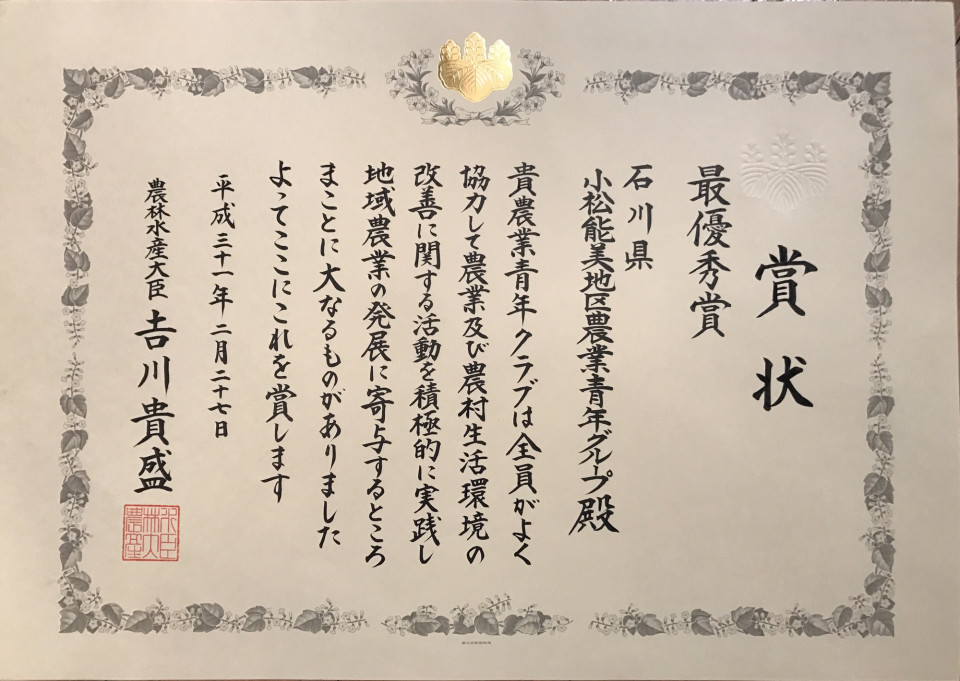 賞状
最優秀賞
石川県
小松能美地区農業青年グループ殿
貴農業青年クラブは全員がよく
協力して農業及び農村生活環境の
改善に関する活動を積極的に実践し
地域農業の発展に寄与するところ
まことに大なるものがありました
よってここにこれを賞します
平成三十一年二月二十七日
農林水産大臣 𠮷川貴盛